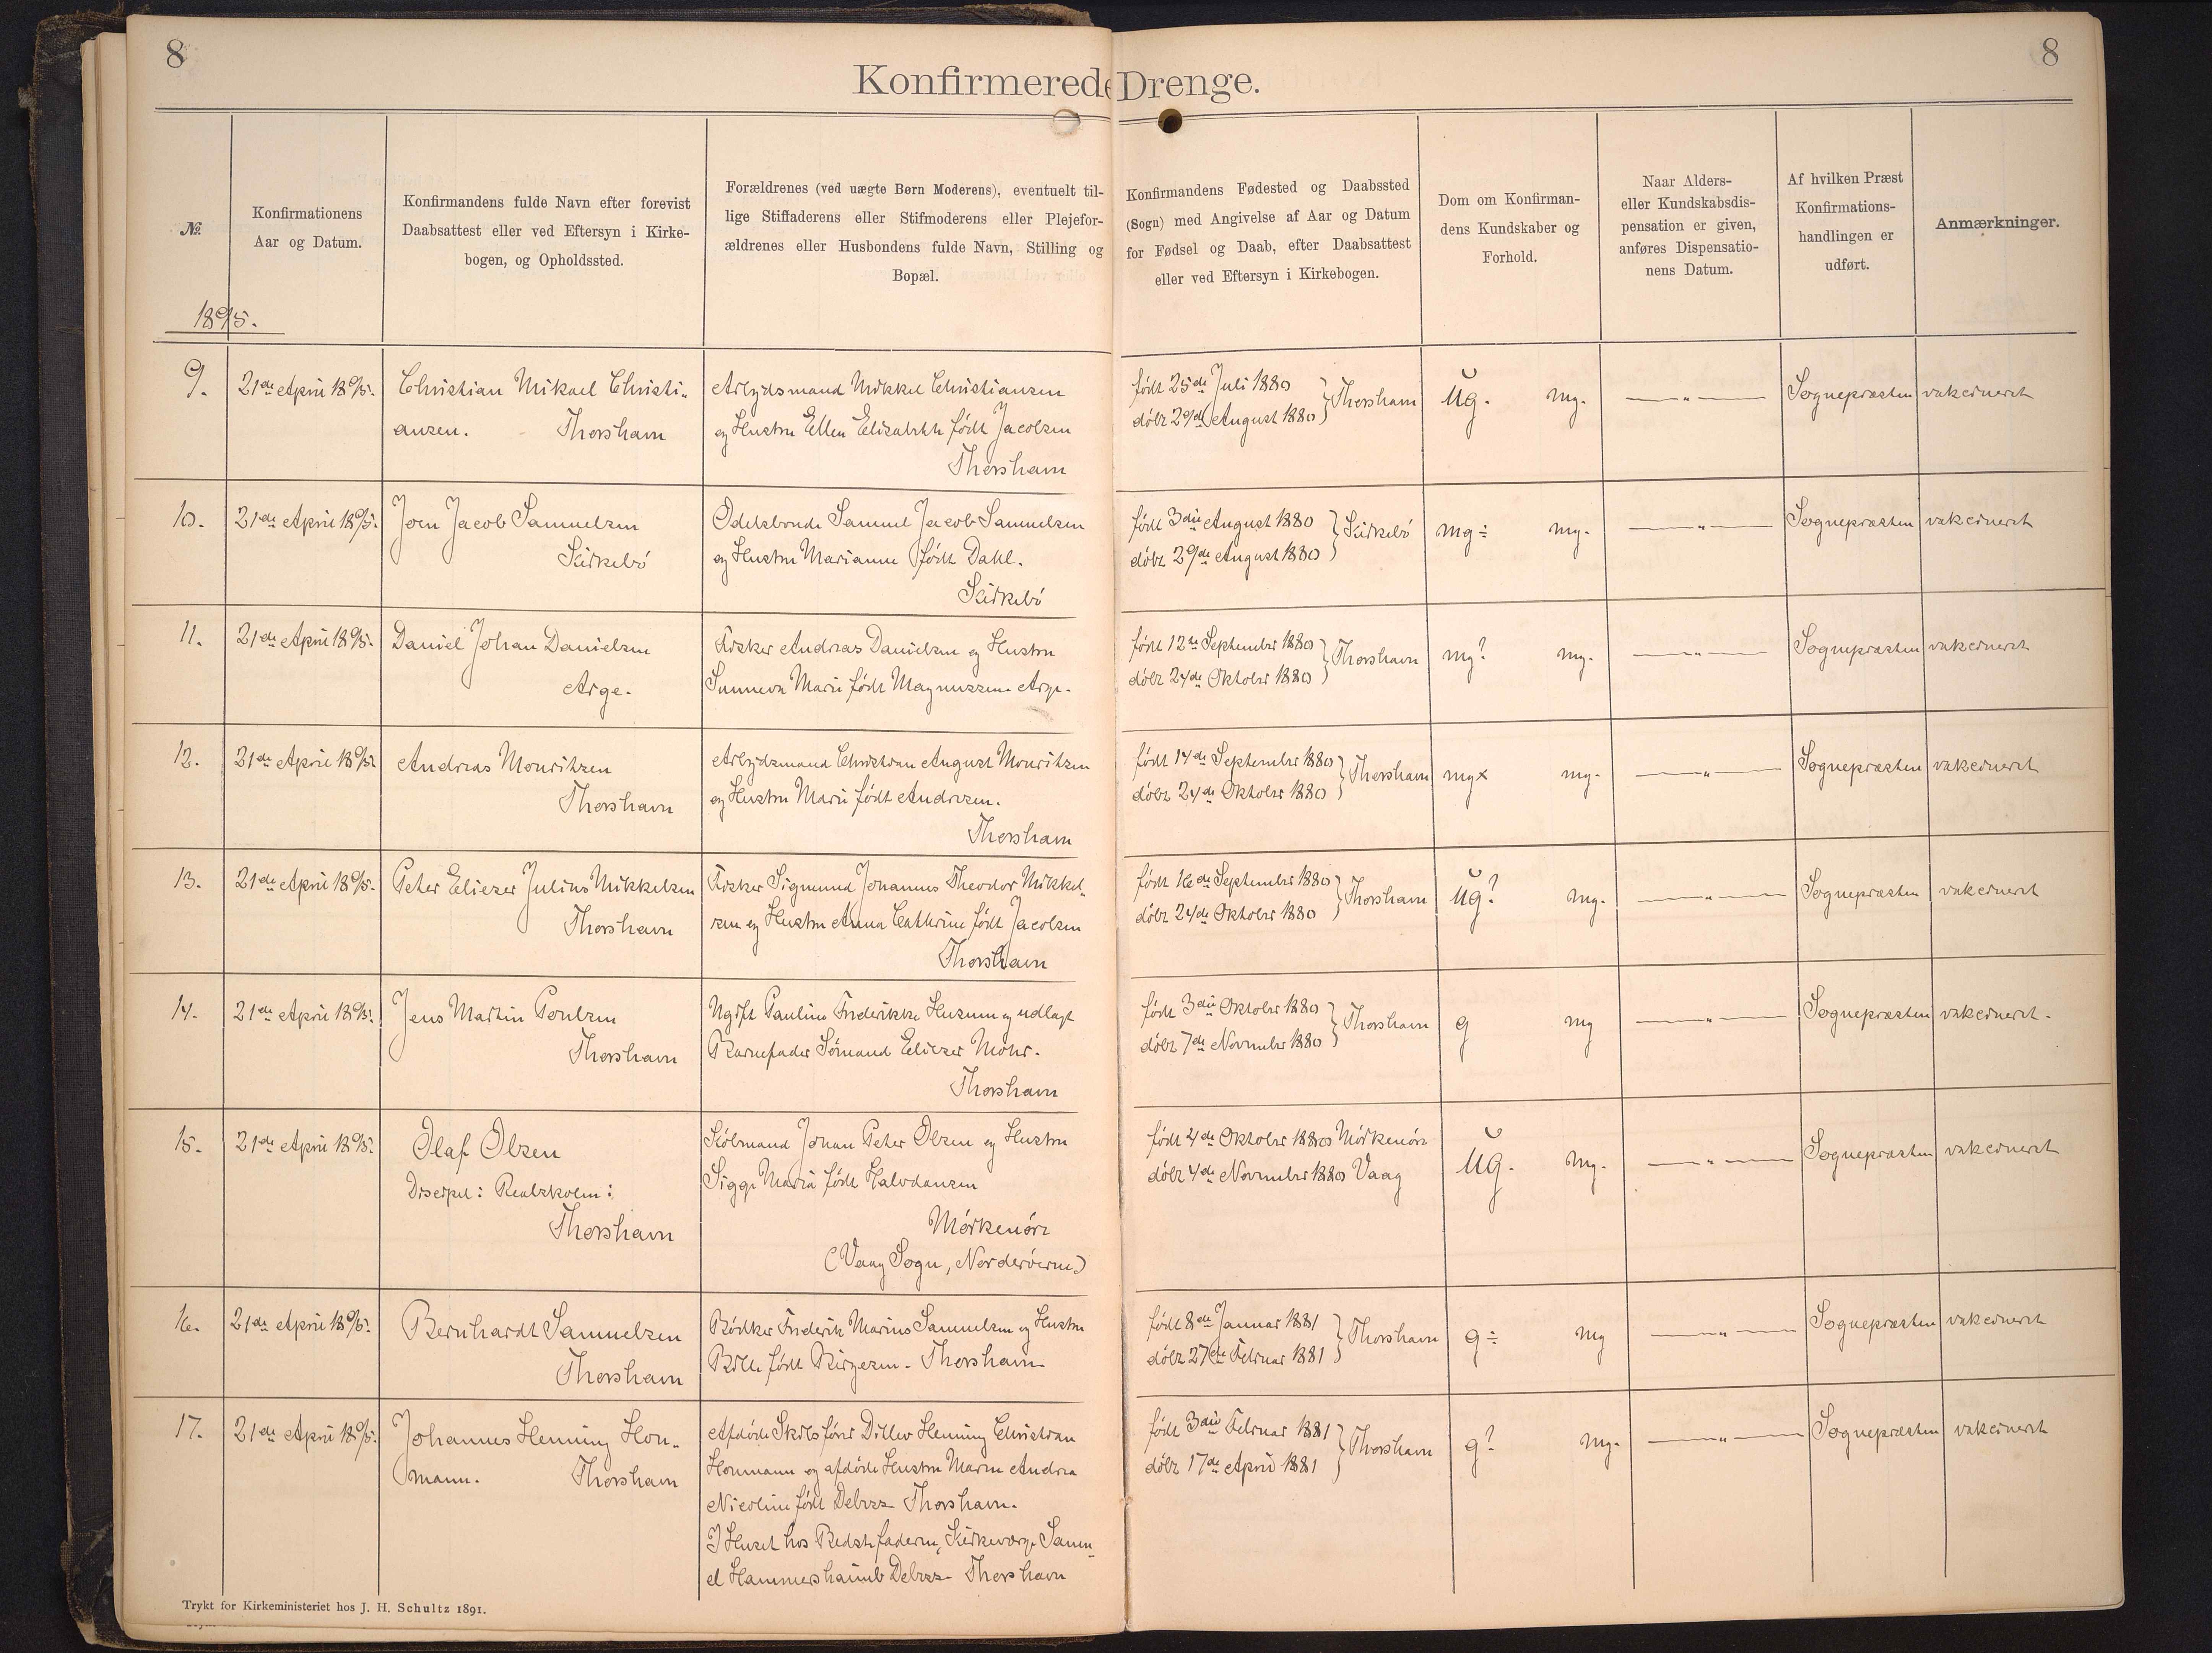 8
8
Konfirmerede Drenge.
№
Konfirmationens
Aar og Datum.
Konfirmandens fulde Navn efter forevist
Daabsattest eller ved Eftersyn i Kirke-
bogen, og Opholdssted.
Forældrenes (ved uægte Børn Moderens), eventuelt til-
lige Stiffaderens eller Stifmoderens eller Plejefor-
ældrenes eller Husbondens fulde Navn, Stilling og
Bopæl.
Konfirmandens Fødested og Daabssted
(Sogn) med Angivelse af Aar og Datum
for Fødsel og Daab, efter Daabsattest
eller ved Eftersyn i Kirkebogen.
Dom om Konfirman-
dens Kundskaber og
Forhold.
Naar Alders-
eller Kundskabsdis-
pensation er given,
anføres Dispensatio-
nens Datum.
Af hvilken Præst
Konfirmations-
handlingen er
udført.
Anmærkninger.
1895.
9.
21de April 1895.
Christian Mikael Christi-
ansen. Thorshavn
Arbejdsmand Mikkel Christiansen
og Hustru Ellen Elisabeth født Jacobsen
Thorshavn
født 25de Juli 1880
døbt 29de August 1880
Thorshavn
ug. mg.
— " —
Sognepræsten
vakcineret
10.
21de April 1895.
Joen Jacob Samuelsen
Kirkebö
Odelsbonde Samuel Jacob Samuelsen
og Hustru Marianne født Dahl.
Kirkebö
født 3die August 1880
døbt 29de August 1880
Kirkebö
mg÷ mg.
— " —
Sognepræsten
vakcineret
11.
21de April 1895.
Daniel Johan Danielsen
Arge.
Fisker Andreas Danielsen og Hustru
Sunneva Marie født Magnussen. Arge.
født 12te September 1880
døbt 24de Oktober 1880
Thorshavn
mg? mg.
— " —
Sognepræsten
vakcineret
12.
21de April 1895.
Andreas Mouritzen
Thorshavn
Arbejdsmand Christian August Mouritzen
og Hustru Marie født Andresen.
Thorshavn
født 14de September 1880
døbt 24de Oktober 1880
Thorshavn
mg× mg.
— " —
Sognepræsten
vakcineret
13.
21de April 1895.
Peter Eliezer Julius Mikkelsen
Thorshavn
Fisker Sigmund Johannes Theodor Mikkel-
sen og Hustru Anna Cathrine født Jacobsen
Thorshavn
født 16de September 1880
døbt 24de Oktober 1880
Thorshavn
ug? mg.
— " —
Sognepræsten
vakcineret
14.
21de April 1895.
Jens Martin Poulsen
Thorshavn
Ugift Pauline Frederikke Husum og udlagt
Barnefader Sömand Eliezer Mohr.
Thorshavn
født 3die Oktober 1880
døbt 7de November 1880
Thorshavn
g mg
— " —
Sognepræsten
vakcineret.
15.
21de April 1895.
Olaf Olsen
Discipel: Realskolen:
Thorshavn
Købmand Johan Peter Olsen og Hustru
Sigge Maria født Halvdansen
Mörkenöre
(Vaag Sogn, Norderöerne)
født 4de Oktober 1880 Mörkenöre
døbt 4de November 1880 Vaag
ug. mg.
— " —
Sognepræsten
vakcineret
16.
21de April 1895.
Bernhardt Samuelsen
Thorshavn
Bödker Frederik Marius Samuelsen og Hustru
Bille født Birgesen. Thorshavn
født 8de Januar 1881
døbt 27de Februar 1881
Thorshavn
g÷ mg
— " —
Sognepræsten
vakcineret
17.
21de April 1895.
Johannes Henning Hon-
mann. Thorshavn
Afdøde Skibsfører Ditlev Henning Christian
Honmann og afdøde Hustru Maren Andrea
Nicoline født Debess Thorshavn.
I Huset hos Bedstefaderen, Kirkeværge Samu-
el Hammershaimb Debess. Thorshavn
født 3die Februar 1881
døbt 17de April 1881
Thorshavn
g? mg.
— " —
Sognepræsten
vakcineret
Trykt for Kirkeministeriet hos J. H. Schultz 1891.